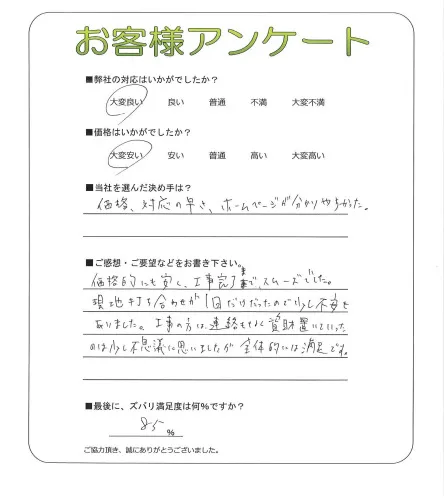 お客様アンケート
■弊社の対応はいかがでしたか？
大変良い 良い 普通 不満 大変不満
■価格はいかがでしたか？
大変安い 安い 普通 高い 大変高い
■当社を選んだ決め手は？
価格、対応の早さ、ホームページが分かりやすかった。
■ご感想・ご要望などをお書き下さい。
価格的にも安く、工事完了まで、スムーズでした。
現地打ち合わせが1回だけだったので少し不安も
ありました。工事の方は、連絡もなく資材置いていった
のは少し不思議に思いましたが全体的には満足です。
■最後に、ズバリ満足度は何％ですか？
85 %
ご協力頂き、誠にありがとうございました。